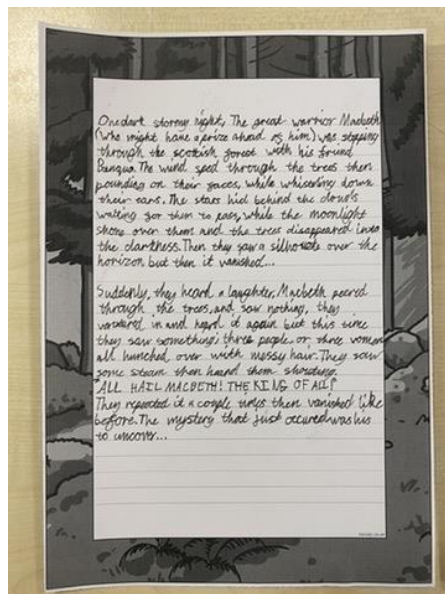 One dark stormy night, The great warrior Macbeth
(who might have a prize ahead of him) was stepping
through the scottish forest with his friend
Banquo. The wind sped through the trees then
pounding on their faces, while whiseling down
their ears. The stars hid behind the clouds
waiting for them to pass, while the moonlight
shone over them and the trees disappeared into
the darkness. Then they saw a silhouete over the
horizon but then it vanished...
Suddenly, they heard a laughter, Macbeth peered
through the trees, and saw nothing, they
in and heard it again but this time
they saw something: three people or three women
all hunched over with messy hair. They saw
some steam then heard them shouting.
"ALL HAIL MACBETH! THE KING OF ALL!"
They repeated it a couple times then vanished like
before. The mystery that just occured was his
to uncover...